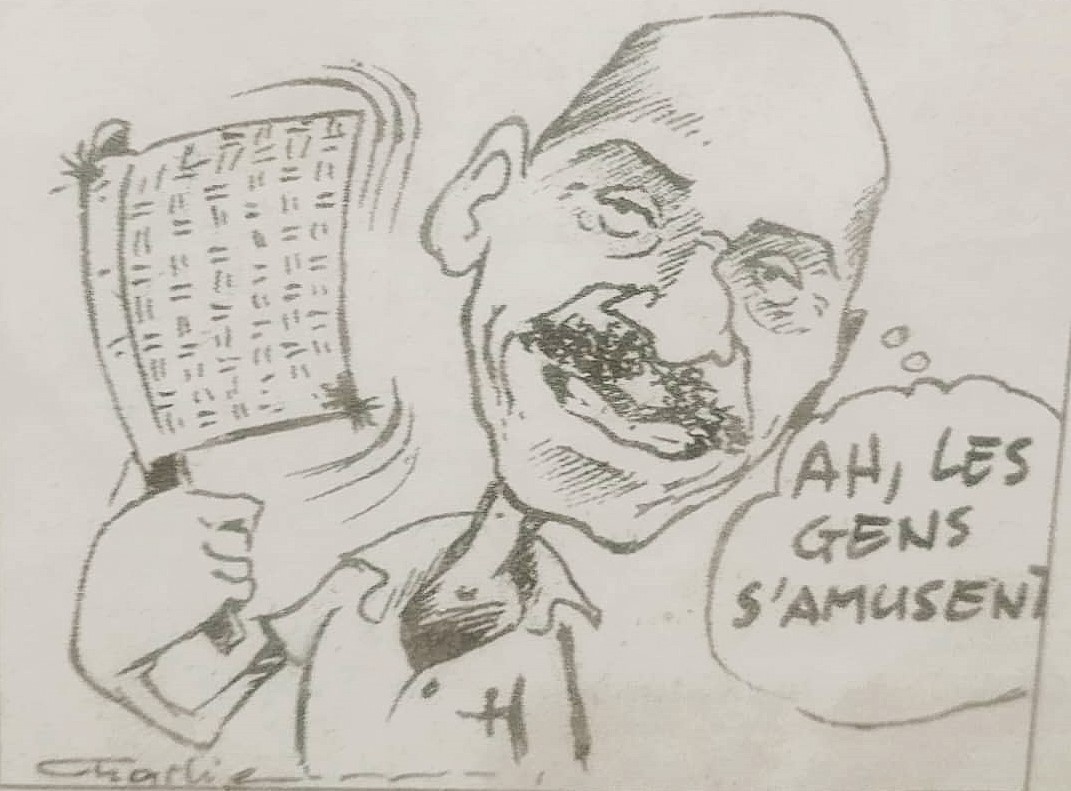 AH, LES
GENS
S'AMUSENT
H
Charlie